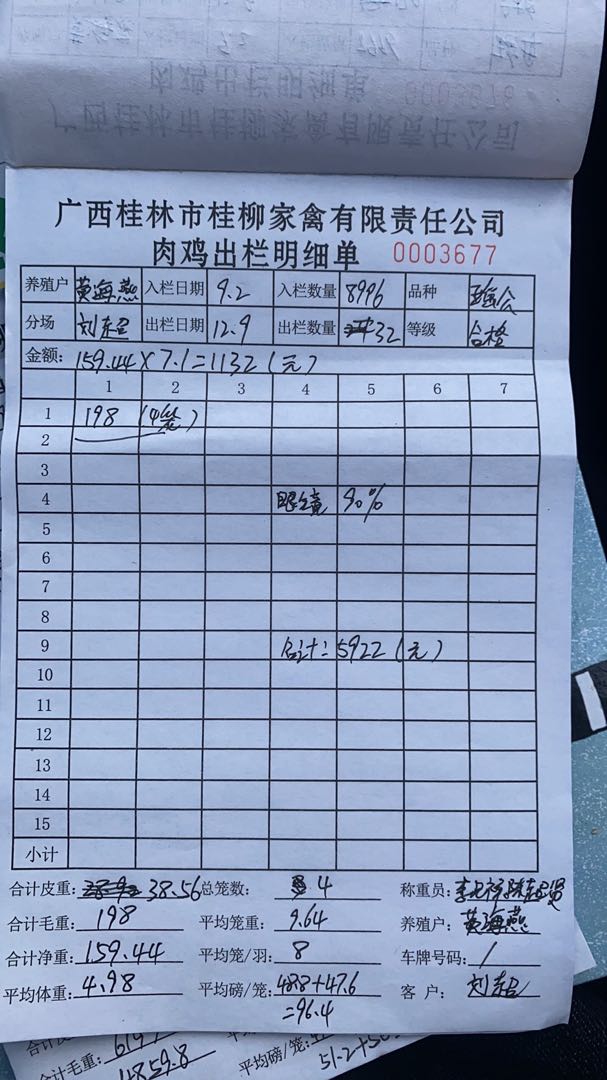 肉鸡出栏明细单 0003676
广西桂林市桂柳家禽有限责任公司
广西桂林市桂柳家禽有限责任公司
肉鸡出栏明细单 0003677
养殖户 黄海燕 入栏日期 9.2 入栏数量 8996 品种
分场 出栏日期 12.9 出栏数量 32 等级 合格
金额: 159.44×7.1=1132(元)
1 2 3 4 5 6 7
1 198 (4笼)
2
3
4 眼镜 90%
5
6
7
8
9 合计: 5922(元)
10
11
12
13
14
15
小计
合计皮重: 38.56 总笼数: 4 称重员:
合计毛重: 198 平均笼重: 9.64 养殖户: 黄海燕
合计净重: 159.44 平均笼/羽: 8 车牌号码: /
平均体重: 4.98 平均磅/笼: 48.8+47.6 客户:
=96.4
合计毛重: 平均磅/笼:
4859.8